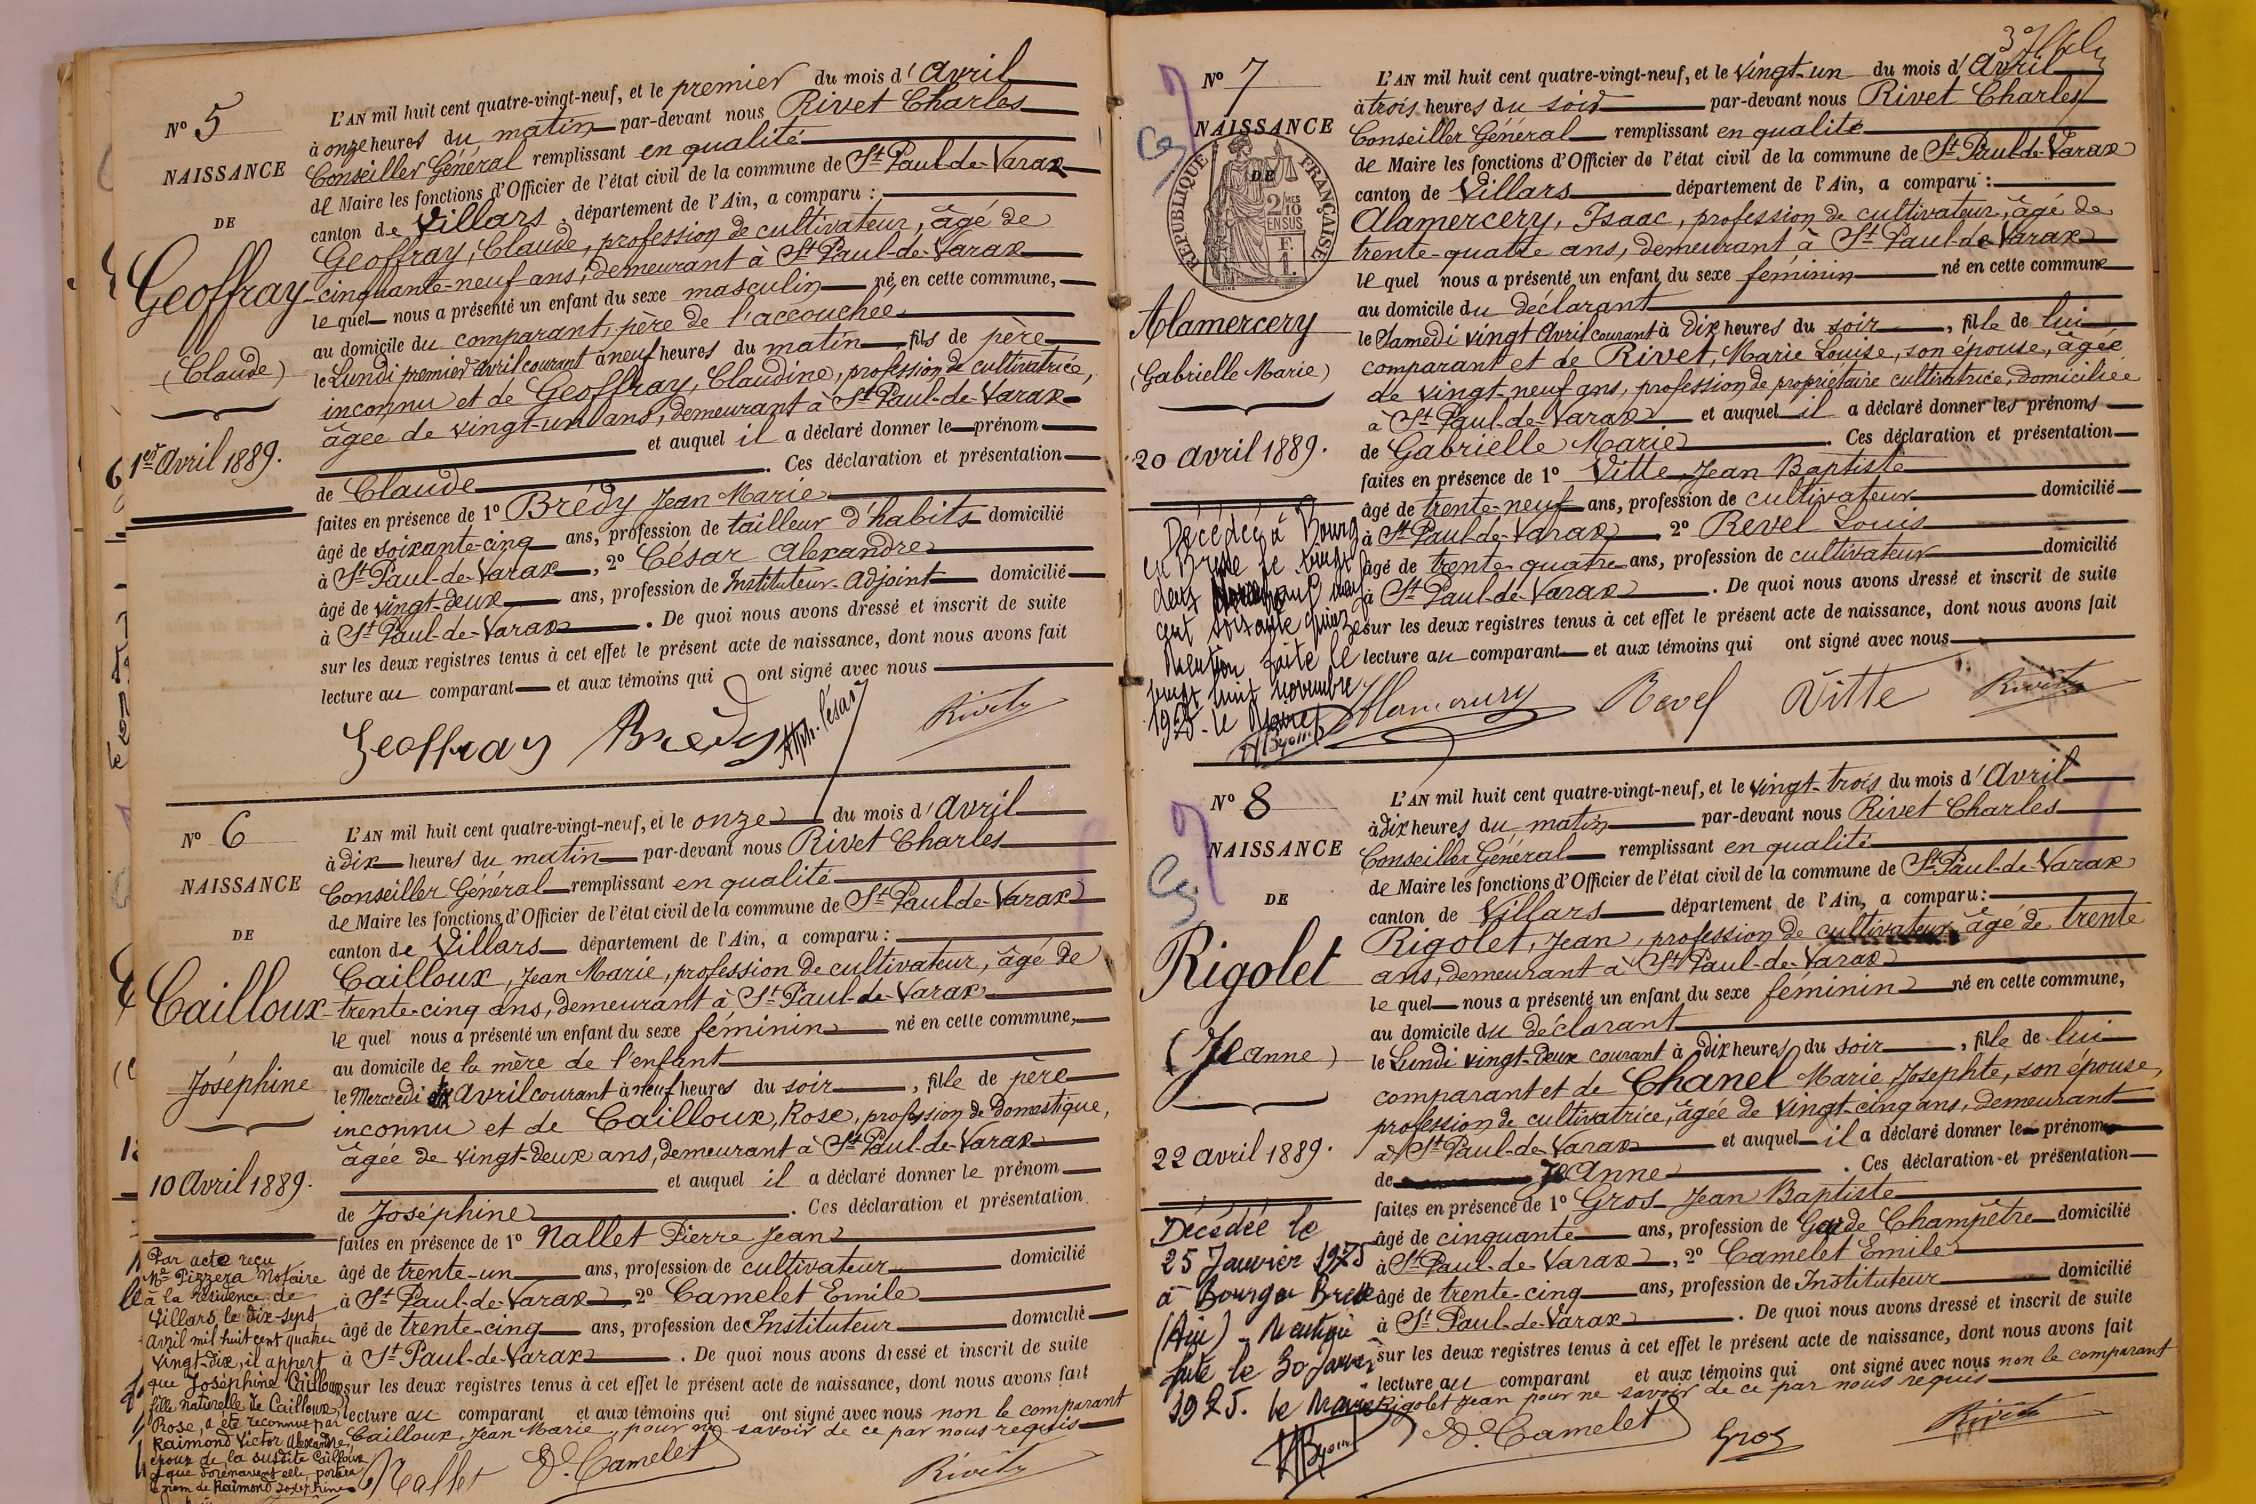 N° 5
NAISSANCE
DE
Geoffray
(Claude)
1er Avril 1889.
L'AN mil huit cent quatre-vingt-neuf, et le premier du mois d'Avril
à onze heures du matin par-devant nous Rivet Charles
Conseiller Général remplissant en qualité
de Maire les fonctions d'Officier de l'état civil de la commune de St Paul-de-Varax
canton de Villars, département de l'Ain, a comparu :
Geoffray, Claude, profession de cultivateur, âgé de
cinquante-neuf ans, demeurant à St Paul-de-Varax
lequel nous a présenté un enfant du sexe masculin né en cette commune,
au domicile du comparant, père de l'accouchée
le Lundi premier avril courant à neuf heures du matin, fils de père
inconnu et de Geoffray, Claudine, profession de cultivatrice,
âgée de vingt-un ans, demeurant à St Paul-de-Varax
et auquel il a déclaré donner le prénom
de Claude. Ces déclaration et présentation
faites en présence de 1° Brédy Jean Marie
âgé de soixante-cinq ans, profession de tailleur d'habits domicilié
à St Paul-de-Varax, 2° César Alexandre
âgé de vingt-deux ans, profession de Instituteur-adjoint domicilié
à St Paul-de-Varax. De quoi nous avons dressé et inscrit de suite
sur les deux registres tenus à cet effet le présent acte de naissance, dont nous avons fait
lecture au comparant et aux témoins qui ont signé avec nous
Geoffray Bredy Alph. César Rivet
N° 6
NAISSANCE
DE
Cailloux
Joséphine
10 Avril 1889.
L'AN mil huit cent quatre-vingt-neuf, et le onze du mois d'Avril
à dix heures du matin par-devant nous Rivet Charles
Conseiller Général remplissant en qualité
de Maire les fonctions d'Officier de l'état civil de la commune de St Paul-de-Varax
canton de Villars département de l'Ain, a comparu :
Cailloux, Jean Marie, profession de cultivateur, âgé de
trente-cinq ans, demeurant à St Paul-de-Varax
lequel nous a présenté un enfant du sexe féminin né en cette commune,
au domicile de la mère de l'enfant
le Mercredi dix Avril courant à neuf heures du soir, fille de père
inconnu et de Cailloux, Rose, profession de Domestique,
âgée de vingt-deux ans, demeurant à St Paul-de-Varax
et auquel il a déclaré donner le prénom
de Joséphine. Ces déclaration et présentation
faites en présence de 1° Nallet Pierre Jean
âgé de trente-un ans, profession de cultivateur domicilié
à St Paul-de-Varax, 2° Camelet Emile
âgé de trente-cinq ans, profession de Instituteur domicilié
à St Paul-de-Varax. De quoi nous avons dressé et inscrit de suite
sur les deux registres tenus à cet effet le présent acte de naissance, dont nous avons fait
lecture au comparant et aux témoins qui ont signé avec nous non le comparant
Cailloux, Jean-Marie, pour ne savoir de ce par nous requis
Nallet E. Camelet Rivet
Par acte reçu
Me Pizzera Notaire
à la résidence de
Villars, le dix-sept
Avril mil huit cent quatre
vingt-dix, il appert
que Joséphine Cailloux
fille naturelle de Cailloux,
Rose, a été reconnue par
Raimond Victor Alexandre,
époux de la susdite Cailloux
et que dorénavant elle portera
le nom de Raimond Joséphine
N° 7
NAISSANCE
DE
RÉPUBLIQUE FRANÇAISE
2 MES
10
EN SUS
F.
1.
Alamercery
(Gabrielle Marie)
20 avril 1889.
L'AN mil huit cent quatre-vingt-neuf, et le vingt-un du mois d'Avril
à trois heures du soir par-devant nous Rivet Charles
Conseiller Général remplissant en qualité
de Maire les fonctions d'Officier de l'état civil de la commune de St Paul-de-Varax
canton de Villars département de l'Ain, a comparu :
Alamercery, Isaac, profession de cultivateur, âgé de
trente-quatre ans, demeurant à St Paul-de-Varax
lequel nous a présenté un enfant du sexe féminin né en cette commune
au domicile du déclarant
le Samedi vingt Avril courant à dix heures du soir, fille de lui
comparant et de Rivet, Marie Louise, son épouse, âgée
de vingt-neuf ans, profession de propriétaire cultivatrice, domiciliée
à St Paul-de-Varax et auquel il a déclaré donner les prénoms
de Gabrielle Marie. Ces déclaration et présentation
faites en présence de 1° Vitte Jean Baptiste
âgé de trente-neuf ans, profession de cultivateur domicilié
à St Paul-de-Varax, 2° Revel Louis
âgé de trente-quatre ans, profession de cultivateur domicilié
à St Paul-de-Varax. De quoi nous avons dressé et inscrit de suite
sur les deux registres tenus à cet effet le présent acte de naissance, dont nous avons fait
lecture au comparant et aux témoins qui ont signé avec nous
Alamercery Revel Vitte Rivet
Décédée à Bourg
en Bresse le vingt
deux novembre neuf
cent soixante quinze
Mention faite le
vingt huit novembre
1975. le Maire
N° 8
NAISSANCE
DE
Rigolet
(Jeanne)
22 avril 1889.
L'AN mil huit cent quatre-vingt-neuf, et le vingt-trois du mois d'Avril
à dix heures du matin par-devant nous Rivet Charles
Conseiller Général remplissant en qualité
de Maire les fonctions d'Officier de l'état civil de la commune de St Paul-de-Varax
canton de Villars département de l'Ain, a comparu :
Rigolet, Jean, profession de cultivateur âgé de trente
ans, demeurant à St Paul-de-Varax
lequel nous a présenté un enfant du sexe féminin né en cette commune,
au domicile du déclarant
le Lundi vingt-deux courant à dix heures du soir, fille de lui
comparant et de Chanel Marie Josephte, son épouse,
profession de cultivatrice, âgée de vingt-cinq ans, demeurant
à St Paul-de-Varax et auquel il a déclaré donner le prénom
de Jeanne. Ces déclaration et présentation
faites en présence de 1° Gros Jean Baptiste
âgé de cinquante ans, profession de Garde Champêtre domicilié
à St Paul-de-Varax, 2° Camelet Emile
âgé de trente-cinq ans, profession de Instituteur domicilié
à St Paul-de-Varax. De quoi nous avons dressé et inscrit de suite
sur les deux registres tenus à cet effet le présent acte de naissance, dont nous avons fait
lecture au comparant et aux témoins qui ont signé avec nous non le comparant
Rigolet Jean pour ne savoir de ce par nous requis
E. Camelet Gros Rivet
Décédée le
25 Janvier 1975
à Bourg en Bresse
(Ain) - Mention
faite le 30 Janvier
1975. le Maire